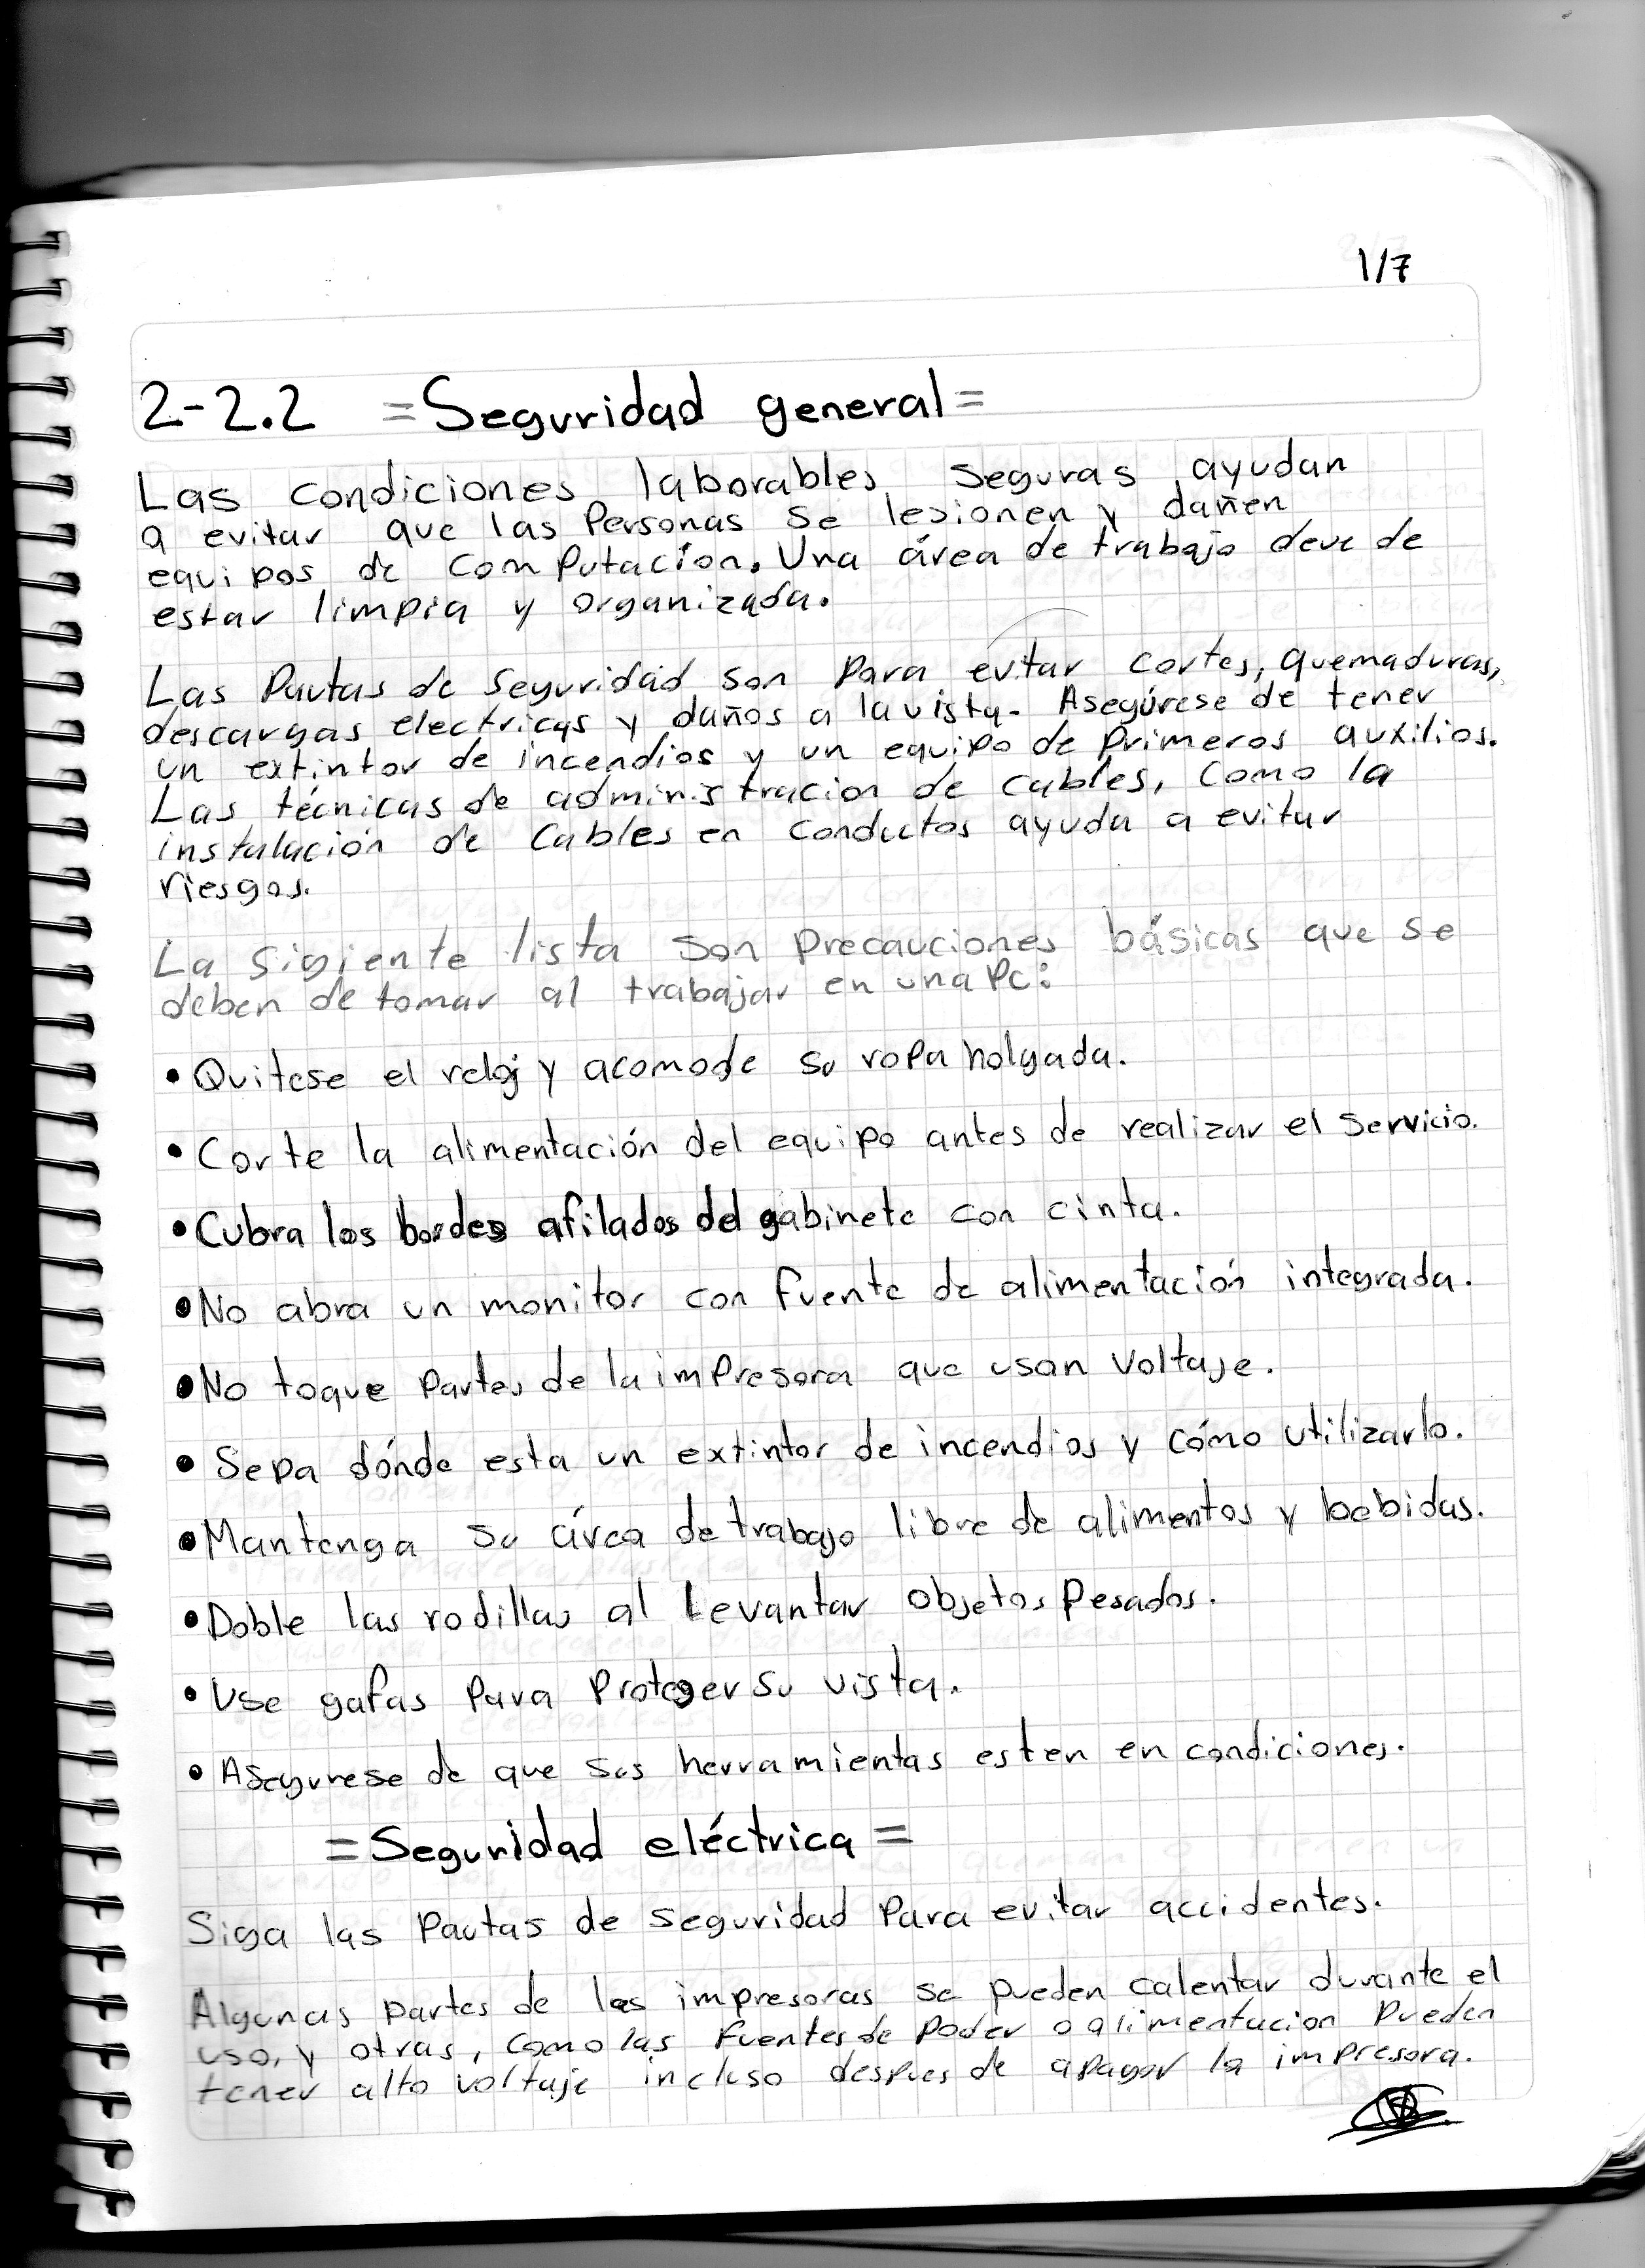 1/7
2-2.2 =Seguridad general=
Las condiciones laborables seguras ayudan
a evitar que las Personas se lesionen y dañen
equipos de computación. Una área de trabajo deve de
estar limpia y organizada.
Las Pautas de seguridad son Para evitar cortes, quemaduras,
descargas electricas y daños a la vista. Asegúrese de tener
un extintor de incendios y un equipo de primeros auxilios.
Las técnicas de administracion de cables, Como la
instalación de Cables en conductos ayuda a evitar
riesgos.
La sigiente lista son precauciones básicas que se
deben de tomar al trabajar en una Pc:
• Quitese el reloj y acomode su ropa holgada.
• Corte la alimentación del equipo antes de realizar el servicio.
• Cubra los bordes afilados del gabinete con cinta.
• No abra un monitor con fuente de alimentación integrada.
• No toque partes de la impresora que usan Voltaje.
• Sepa dónde esta un extintor de incendios y cómo utilizarlo.
• Mantenga su área de trabajo libre de alimentos y bebidas.
• Doble las rodillas al Levantar objetos Pesados.
• Use gafas Para Proteger su vista.
• Asegurese de que sus herramientas esten en condiciones.
=Seguridad eléctrica=
Siga las Pautas de seguridad Para evitar accidentes.
Algunas partes de las impresoras se pueden calentar durante el
uso, y otras, como las fuentes de poder o alimentacion Pueden
tener alto voltaje incluso despues de apagar la impresora.